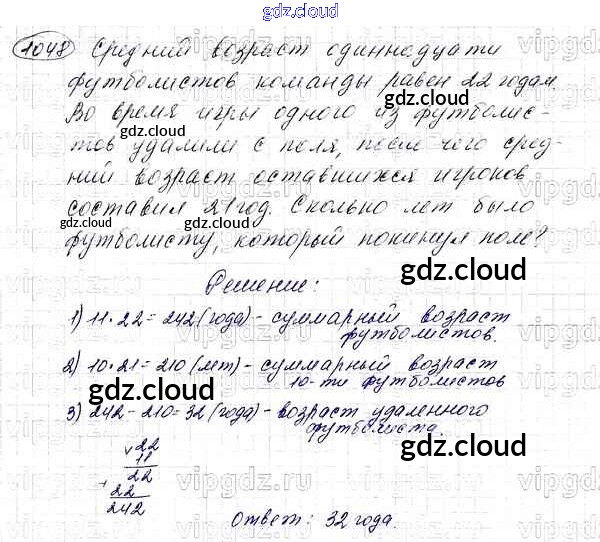 gdz.cloud
1048 Средний возраст одиннадцати
gdz.cloud
vipgdz.ru vipgdz.ru
футболистов команды равен 22 годам.
gdz.cloud
Во время игры одного из футболис-
gdz.cloud
тов удалили с поля, после чего сред-
gdz.cloud
ний возраст оставшихся игроков
составил 21 год. Сколько лет было
gdz.cloud gdz.cloud
футболисту, который покинул поле?
gdz.cloud
Решение:
1) 11·22=242(года)-суммарный возраст
футболистов.
2) 10·21=210(лет)-суммарный возраст
10-ти футболистов
gdz.cloud gdz.cloud
3) 242-210=32(года)-возраст удаленного
футболиста.
22
11
22
+
22
242
gdz.cloud
Ответ: 32 года.